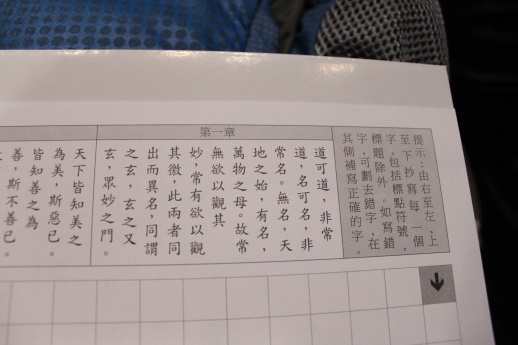 提示：由右至左、上
至下抄寫每一個
字，包括標點符號，
標題除外。如寫錯
字，可劃去錯字，在
其側補寫正確的字。
第一章
道可道，非常
道，名可名，非
常名。無名，天
地之始，有名，
萬物之母。故常
無欲以觀其
妙，常有欲以觀
其徼，此兩者同
出而異名，同謂
之玄，玄之又
玄，眾妙之門。
天下皆知美之
為美，斯惡已。
皆知善之為
善，斯不善已。